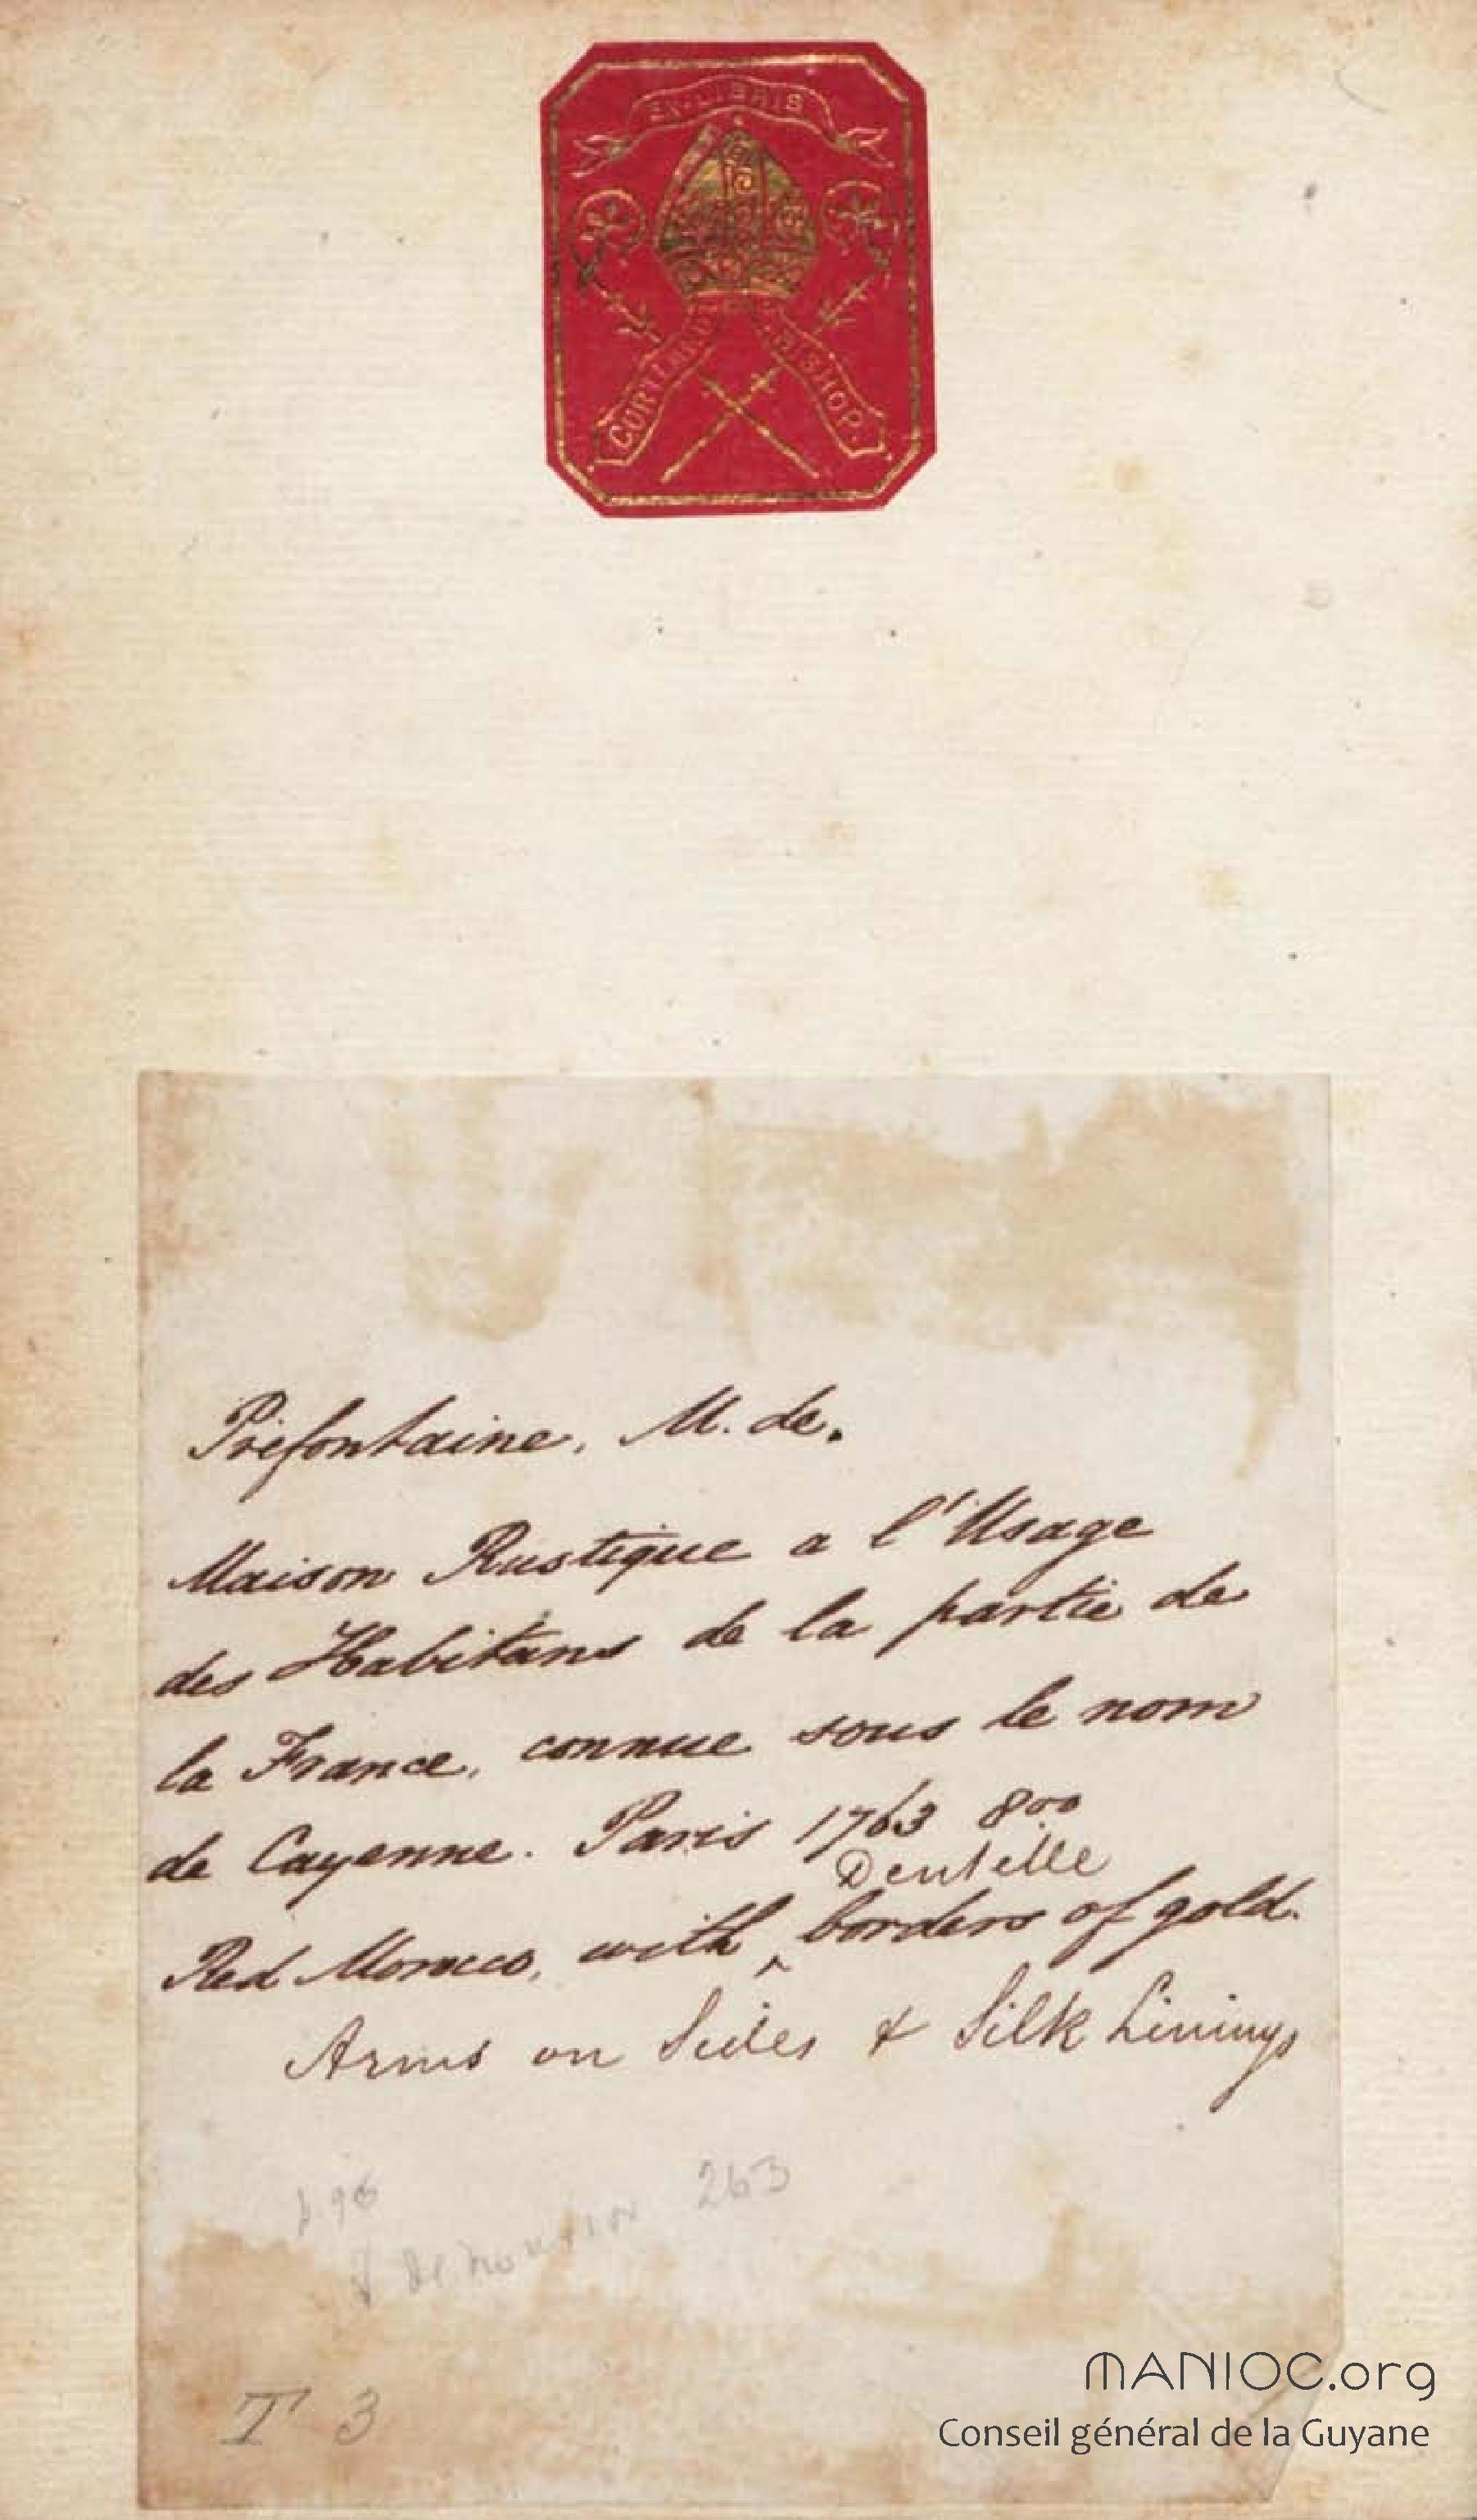 EX-LIBRIS
CORTLANDT BISHOP.
Préfontaine. M. de.
Maison Rustique a l'Usage
des Habitans de la partie de
la France, connue sous le nom
de Cayenne. Paris 1763 8vo
Dentelle
Red Morocco, with ‸ borders of gold.
Arms on Sides & Silk Linings
263
T 3
MANIOC.org
Conseil général de la Guyane